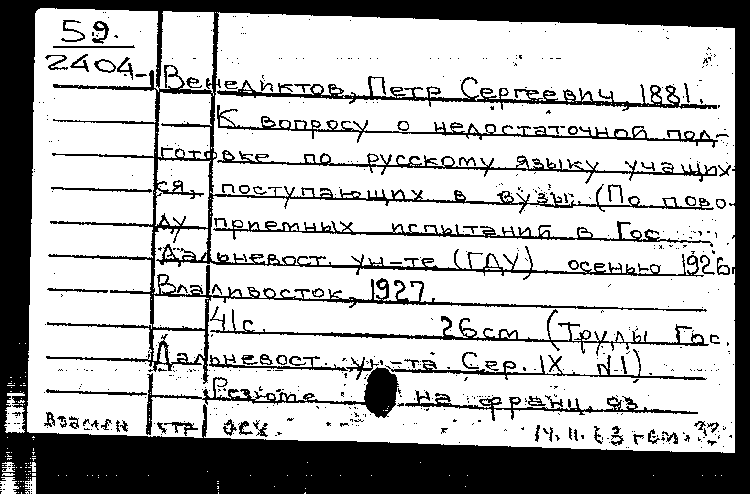 59.
2404-1
Венедиктов, Петр Сергеевич, 1881.
К вопросу о недостаточной под-
готовке по русскому языку учащих-
ся, поступающих в вузы. (По пово-
ду приемных испытаний в Гос
Дальневост. ун-те (ГДУ) осенью 1926
Владивосток, 1927.
41с. 26см (Труды Гос.
Дальневост. ун-та Сер. IX №1).
Резюме на франц. яз.
Взамен 14.11.63